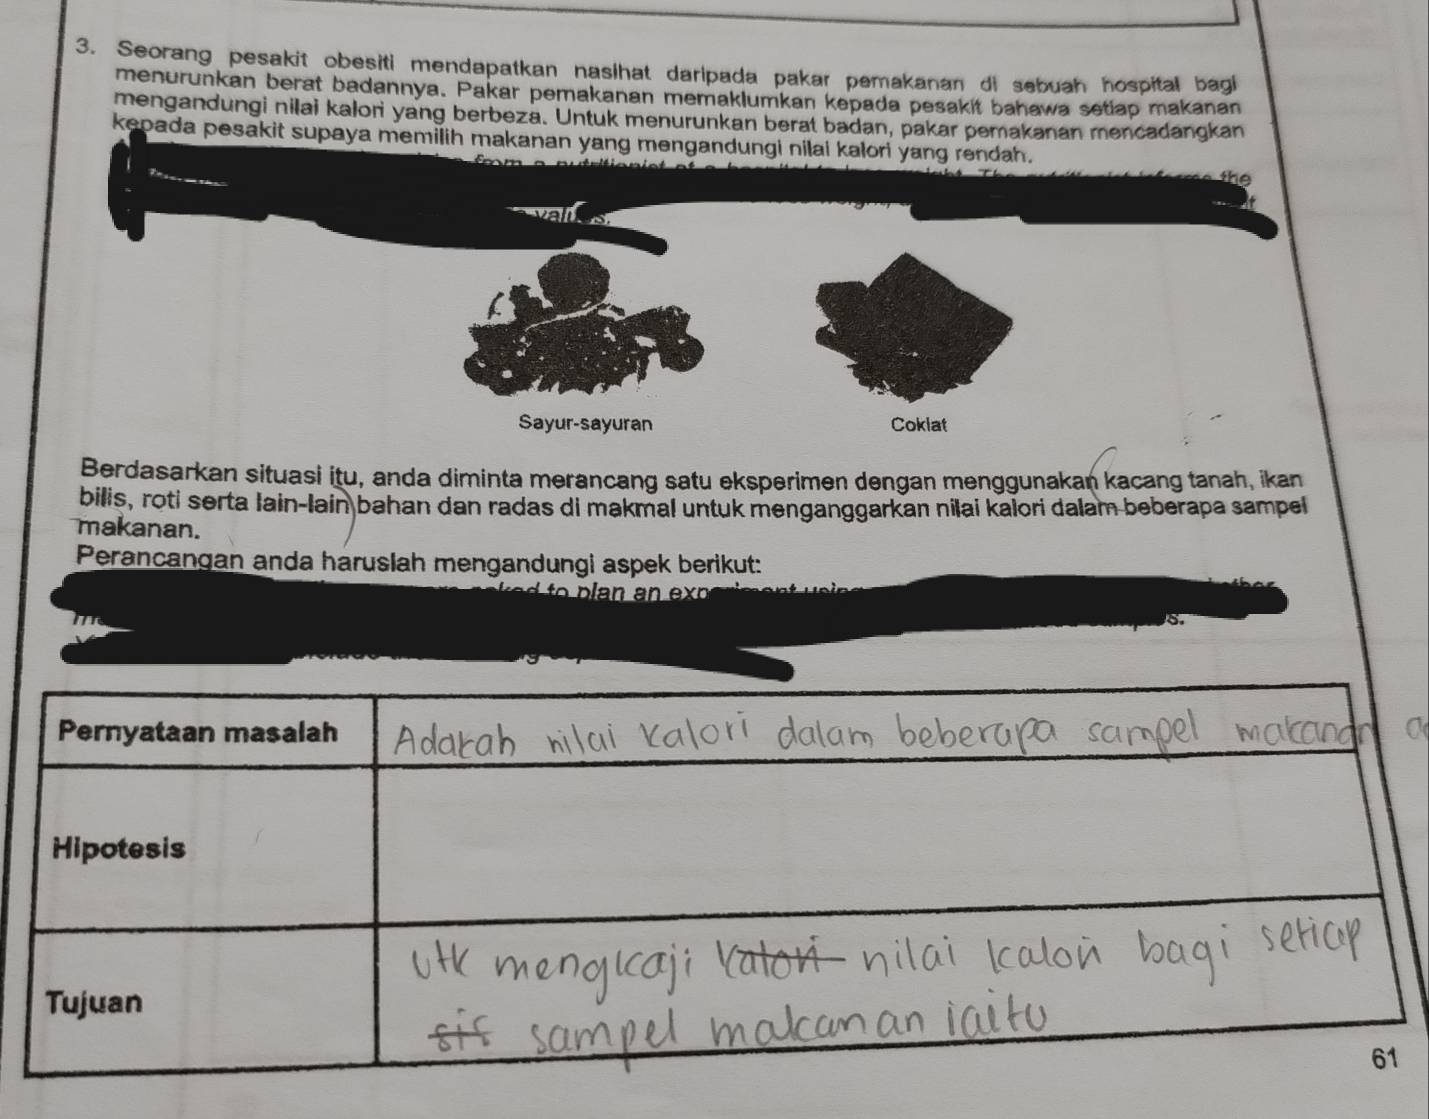 3. Seorang pesakit obesiti mendapatkan nasihat daripada pakar pemakanan di sebuah hospital bagi
menurunkan berat badannya. Pakar pemakanan memaklumkan kepada pesakit bahawa setiap makanan
mengandungi nilai kalori yang berbeza. Untuk menurunkan berat badan, pakar pemakanan mencadangkan
kepada pesakit supaya memilih makanan yang mengandungi nilai kalori yang rendah.
the
Sayur-sayuran
Coklat
Berdasarkan situasi itu, anda diminta merancang satu eksperimen dengan menggunakan kacang tanah, ikan
bilis, roti serta lain-lain bahan dan radas di makmal untuk menganggarkan nilai kalori dalam beberapa sampel
makanan.
Perancangan anda haruslah mengandungi aspek berikut:
to plan an
Pernyataan masalah
Adakah nilai kalori dalam beberapa sampel makanan
Hipotesis
Tujuan
Utk mengkaji kalori nilai kalori bagi setiap
sampel makanan iaitu
61